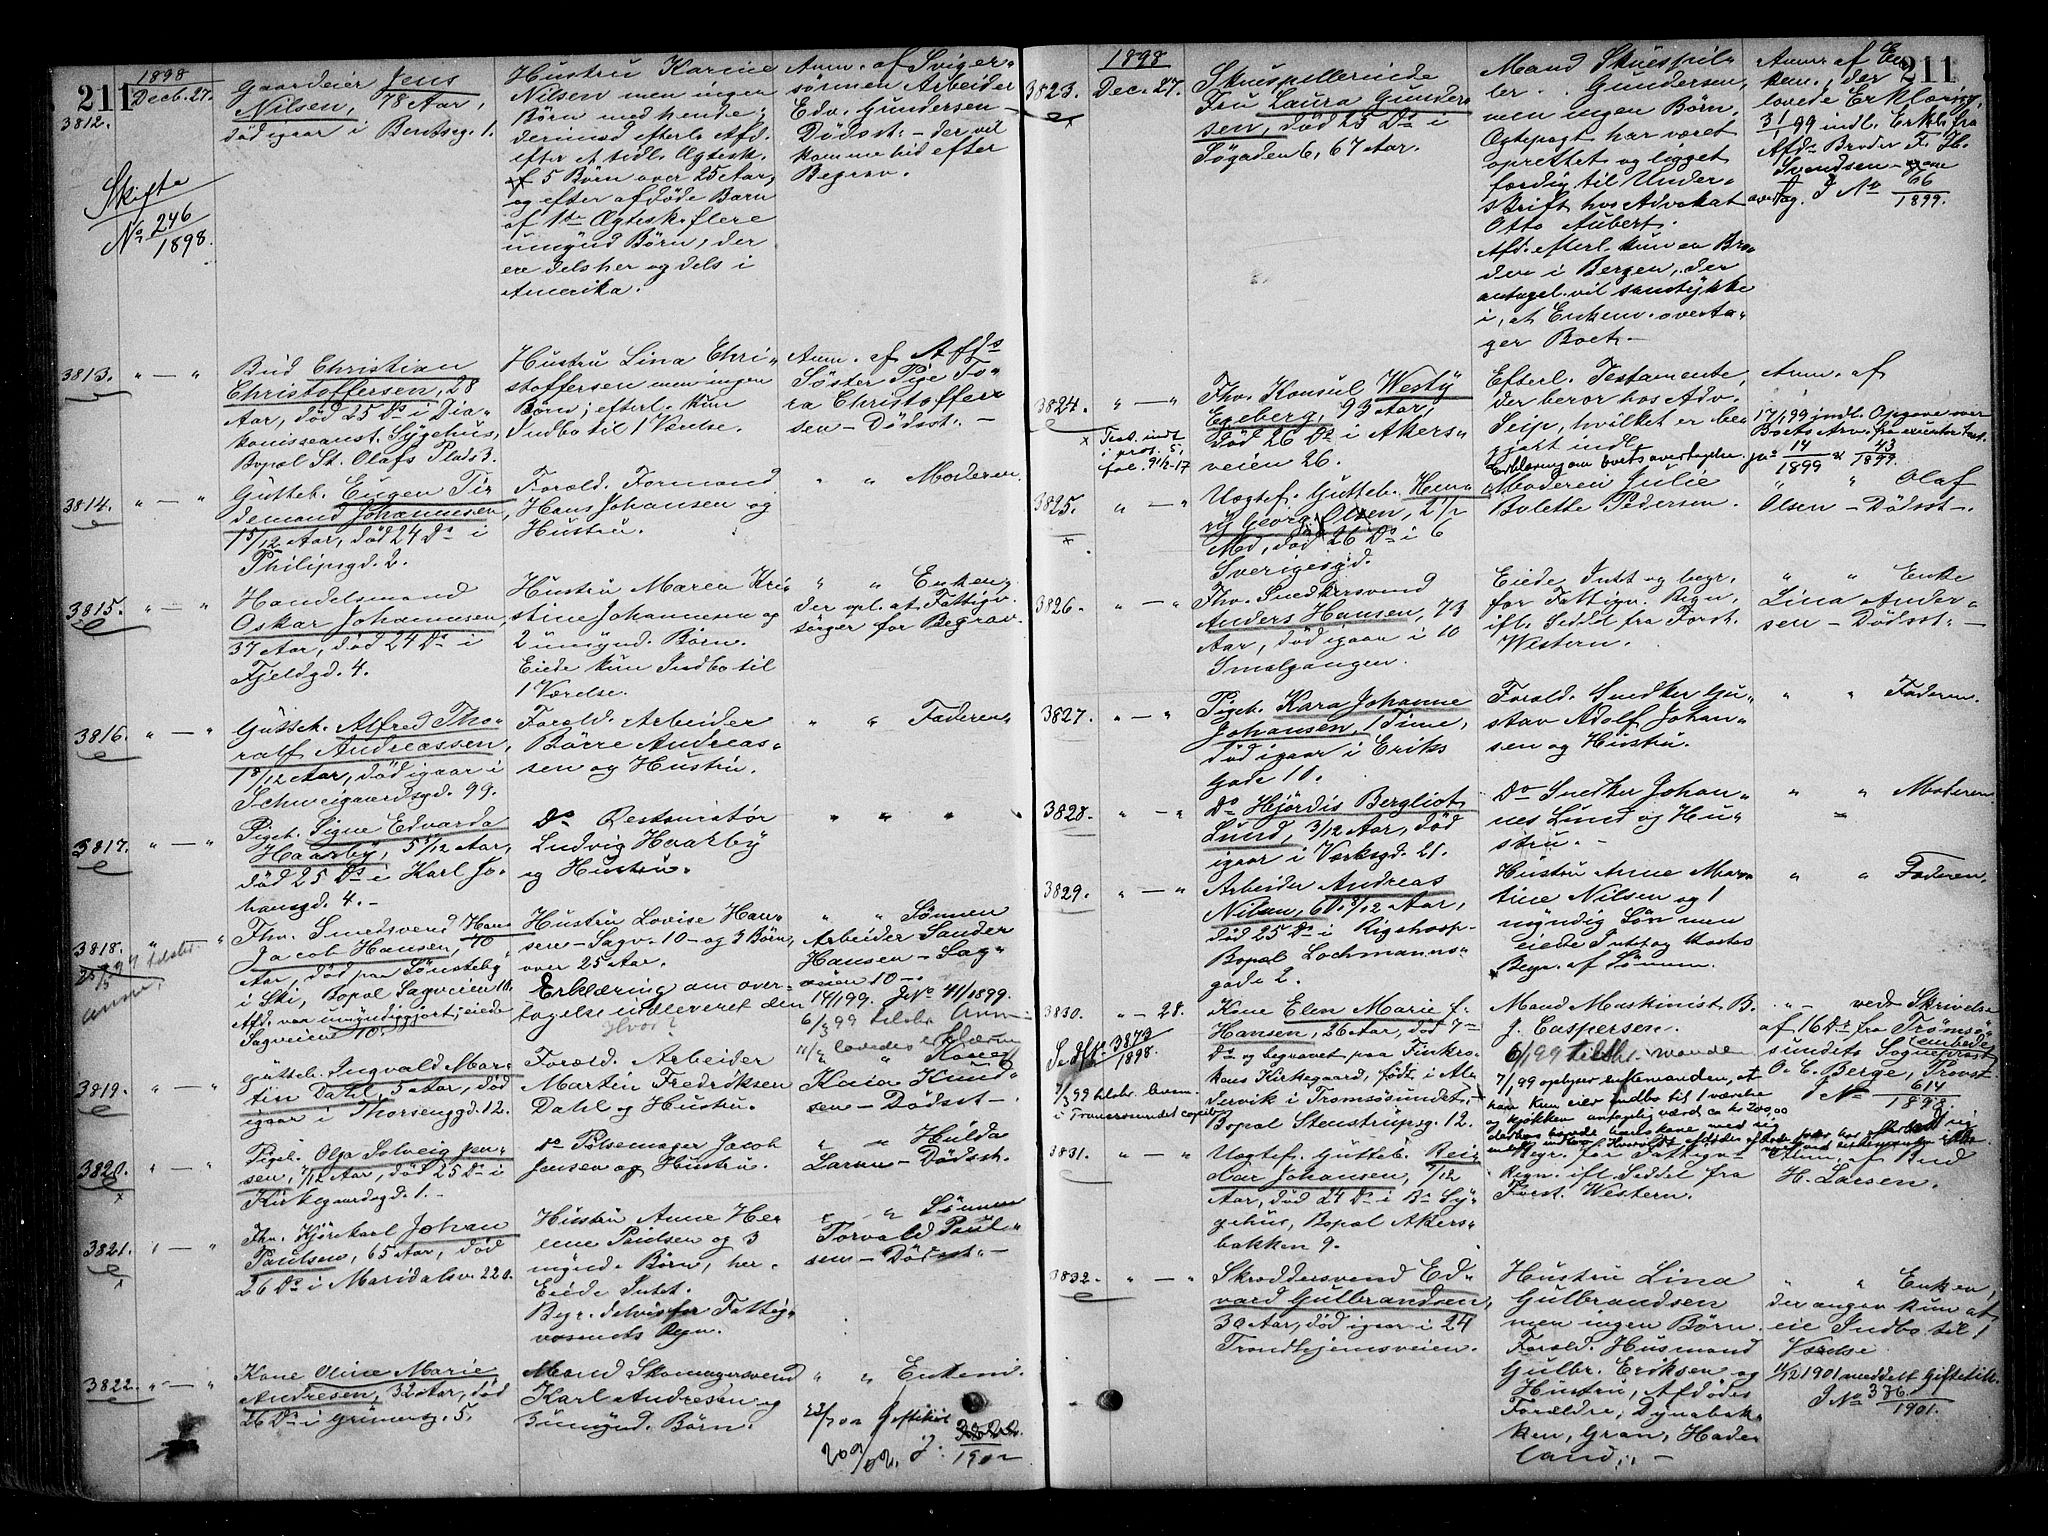 211
1898
Decb. 27.
3812.
Skifte
No 246
1898.
Gaardeier Jens
Nilsen, 78 Aar,
død igaar i Berntsg. 1.
Hustru Karine
Nilsen men ingen
Børn med hende;
derimod efterl. Afd.
efter et tidl. Ægtesk.
5 Børn over 25 Aar,
og efter afdøde Barn
af 1ste Ægtesk. flere
umynd Børn, der
ere dels her og dels i
Amerika.
Anm. af Sviger-
sønnen Arbeider
Edv. Gundersen
Dødsst. - der vil
komme hid efter
Begrav.
3813.
" — "
Bud Christian
Christoffersen, 28
Aar, død 25 Ds i Dia-
konisseanst. Sygehus,
Bopæl St. Olafs Plads 3.
Hustru Lina Chri-
stoffersen men ingen
Børn; efterl. kun
Indbo til 1 Værelse.
Anm. af Afds
Søster Pige To-
ra Christoffer-
sen - Dødsst. -
3814.
" — "
Gutteb. Eugen Ti-
demand Johannesen,
1 5/12 Aar, død 24 Ds i
Philipsgd. 2.
Foræld. Formand
Hans Johansen og
Hustru.
" " Moderen.
3815.
" — "
Handelsmand
Oskar Johannesen,
37 Aar, død 24 Ds i
Fjeldgd. 4.
Hustru Maren Kri-
stine Johannesen og
2 umynd. Børn.
Eiede kun Indbo til
1 Værelse.
" " Enken,
der opl. at Fattigv.
sørger for Begrav.
3816.
" — "
Gutteb. Alfred Tho-
ralf Andreassen,
1 8/12 Aar, død igaar i
Schweigaardsgd. 99.
Foræld. Arbeider
Børre Andreas-
sen og Hustru.
" " Faderen.
3817.
" — "
Pigeb. Signe Edvarda
Haarby, 5 1/12 Aar,
død 25 Ds i Karl Jo-
hansgd. 4. -
Do Restauratør
Ludvig Haarby
og Hustru.
" " "
3818.
" — "
Fhv. Smedsvend Hans
Jacob Hansen, 70
Aar, død paa Sønsteby
i Ski, Bopæl Sagveien 10.
Afd. var umyndiggjort; eiede
Sagveien 10.
Hustru Lovise Han-
sen - Sagv. 10 - og 3 Børn,
over 25 Aar.
Erklæring om over-
tagelse indleveret den 14/1 99. J No 41/1899.
" " Sønnen
Arbeider Sander
Hansen - Sag-
veien 10 -
3819.
" — "
Gutteb. Ingvald Mar-
tin Dahl, 5 Aar, død
igaar i Thorsenggd. 12.
Foræld. Arbeider
Martin Fredriksen
Dahl og Hustru.
" Konen
Kaia Knud-
sen - Dødsst -
3820.
" — "
Pigeb. Olga Solveig Jen-
sen, 1/12 Aar, død 25 Ds i
Kirkegaardsgd. 1. -
Do Pølsemager Jacob
Jensen og Hustru.
" " Hulda
Larsen - Dødsst. -
3821.
" — "
Fhv. Kjørekarl Johan
Paulsen, 65 Aar, død
26 Ds i Maridalsv. 220.
Hustru Anne He-
lene Paulsen og 3
mynd. Børn, her.
Eiede Intet.
Begr. delvis for Fattig-
væsenets Regn.
" " Sønnen
Torvald Paul-
sen - Dødsst. -
3822.
" — "
Kone Oline Marie
Andresen, 32 Aar, død
26 Ds i Grünersg. 5.
Mand Skomagersvend
Karl Andresen og
3 umynd. Børn.
" " Enkem.
1902
211
1898
3823.
Dec. 27.
Skuespillerinde
Fru Laura Gunder-
sen, død 25 Ds i
Søgaden 6, 67 Aar.
Mand Skuespil-
ler . . Gundersen,
men ingen Børn,
Ægtepagt har været
oprettet og ligget
færdig til Under-
skrift hos Advokat
Otto Aubert.
Afd. efterl. kun en Bro-
der i Bergen, der
antagel. vil samtykke
i, at Enkem. overta-
ger Boet. -
Anm. af En-
kem., der
lovede Erklæring.
31/1 99 indl. Erkl. fra
Afds Broder F. Hb.
Svendsen - om
overtag. J No 66
1899.
3824.
" — "
Test. indt.
i prot. 5,
fol. 91/2-17
Fhv. Konsul Westy
Egeberg, 93 Aar,
død 26 Ds i Akers-
veien 26.
Efterl. Testamente,
der beror hos Adv.
Seip, hvilket er be-
gjært indl.
Erklæring om boets overtagelse. jno 14/1899 & 43/1899.
Anm. af
17/1 99 indl. Opgave over
Boets Arv.
3825.
" — "
Uægtef. Gutteb. Hen-
ry Georg Olsen, 2 1/2
Md, død 26 Ds i 6
Sverigesgd.
Moderen Julie
Bolette Pedersen.
" " Olaf
Olsen - Dødsst -.
3826.
" — "
Fhv. Snedkersvend
Anders Hansen, 73
Aar, død igaar i 10
Smalgangen.
Eiede Intet og begr.
for Fattigv. Regn,
ifl. Seddel fra Forst.
Western.
" " Enke
Lina Ander-
sen - Dødsst. -
3827.
" — "
Pigeb. Kara Johanne
Johansen, 1 Time,
død igaar i Eriks
Gade 10.
Foræld. Snedker Gu-
stav Adolf Johan-
sen og Hustru.
" " Faderen.
3828.
" — "
Do Hjördis Bergliot
Lund, 3/12 Aar, død
igaar i Værksgd. 21.
Do Snedker Johan-
nes Lund og Hu-
stru. -
" " Moderen
3829.
" — "
Arbeider Andreas
Nilsen, 60 9/12 Aar,
død 25 Ds i Rigshosp.
Bopæl Lochmanns-
gade 2.
Hustru Anne Mar-
tine Nilsen og 1
myndig Søn men
eiede Intet og kostes
Begr. af Sønnen.
" " Faderen.
3830.
" — 28.
Se No 3873
1898.
Kone Elen Marie f.
Hansen, 26 Aar, død 7-
Ds og begravet paa Finkro-
kens Kirkegaard, født i Al-
dervik i Tromsøsundet,
Bopæl Stenstrupsg. 12.
Mand Maskinist B.
J. Caspersen.
7/1 99 oplyser enkemanden, at
han kun eier indbo til 1 værelse
og kjøkken antagelig værd ca kr 200,00
" - ved Skrivelse
af 16 Ds fra Tromsø-
sundets Sogneprest
embede
O. E. Berge, Provst.
J No 614
1898
3831.
" — "
Uægtef. Gutteb. Rei-
dar Johansen, 7/12
Aar, død 24 Ds i Bs Sy-
gehus, Bopæl Akers-
bakken 9.
Begr. for Fattigv.
Regn. ifl. Seddel fra
Forst. Western.
Anm. af Bud
H. Larsen.
3832.
" — "
Skræddersvend Ed-
vard Gulbrandsen,
30 Aar, død igaar i 24
Trondhjemsveien.
Hustru Lina
Gulbrandsen
men ingen Børn.
Foræld. Husmand
Gulbr. Eriksen og
Hustru, Afdødes
Forældre, Dynabak-
ken, Gran, Hade-
land. -
" " Enken,
der angav kun at
eie Indbo til 1
Værelse
11/12 1901 meddelt Giftetill.
J No 376
1901.